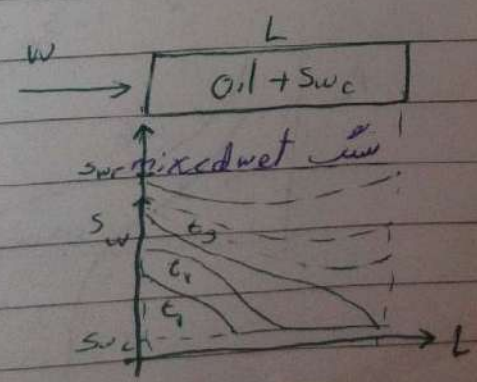 L
W
oil + Swc
Swc mixed wet سنگ
Sw
t3
t2
t1
Swc
L